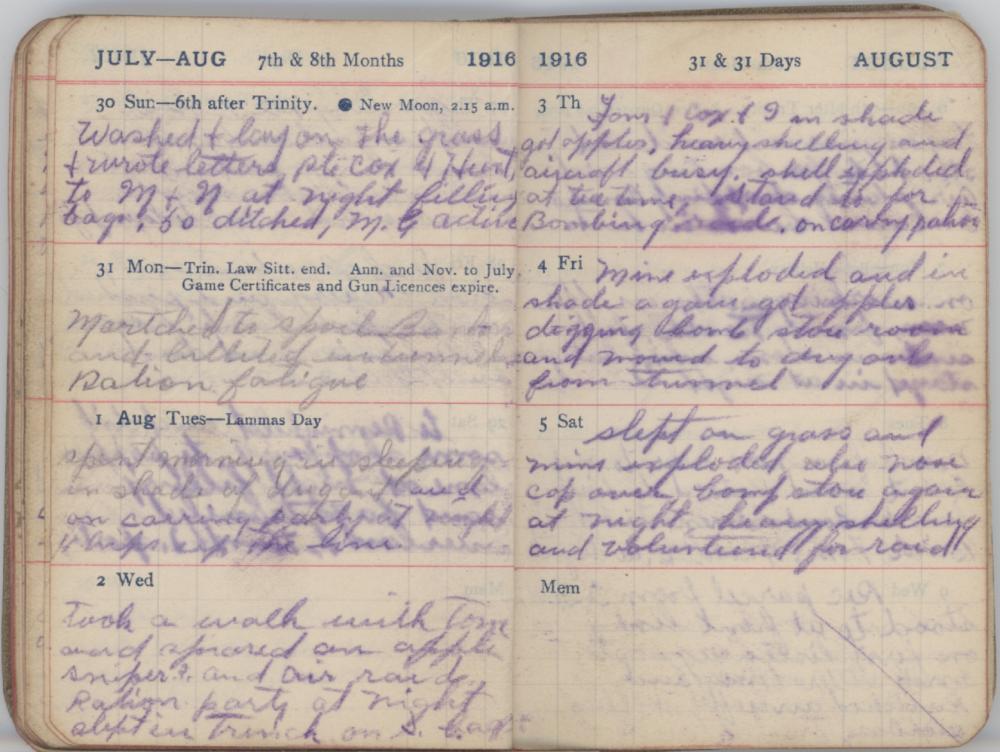 JULY—AUG 7th & 8th Months 1916
30 Sun—6th after Trinity. New Moon, 2.15 a.m.
Washed & lay on the grass
& wrote letters, Pte Cox & Hunt
to M & N at night filling
bags, 50 ditched, M. G active
31 Mon—Trin. Law Sitt. end. Ann. and Nov. to July
Game Certificates and Gun Licences expire.
Martched to spoil
and billited in tunnel
Ration fatigue
1 Aug Tues—Lammas Day
spent morning in sleeping
in shade of dugout and
on carring party at night
up the line
2 Wed
Took a walk with Tom
and an apple
sniper? and air raid,
Ration party at night
slept in Trench on S. bags
1916 31 & 31 Days AUGUST
3 Th Tom & Cox & I in shade
got apples, heavy shelling and
aircraft busy, shell exploded
at tea time, stand to for
Bombing on carry patrol
4 Fri Mine exploded and in
shade again got apples
digging bomb store room
and moved to dug out
from tunnel
5 Sat slept on grass and
mine exploded also nose
cap over, bomb store again
at night heavy shelling
and volunteered for raid
Mem